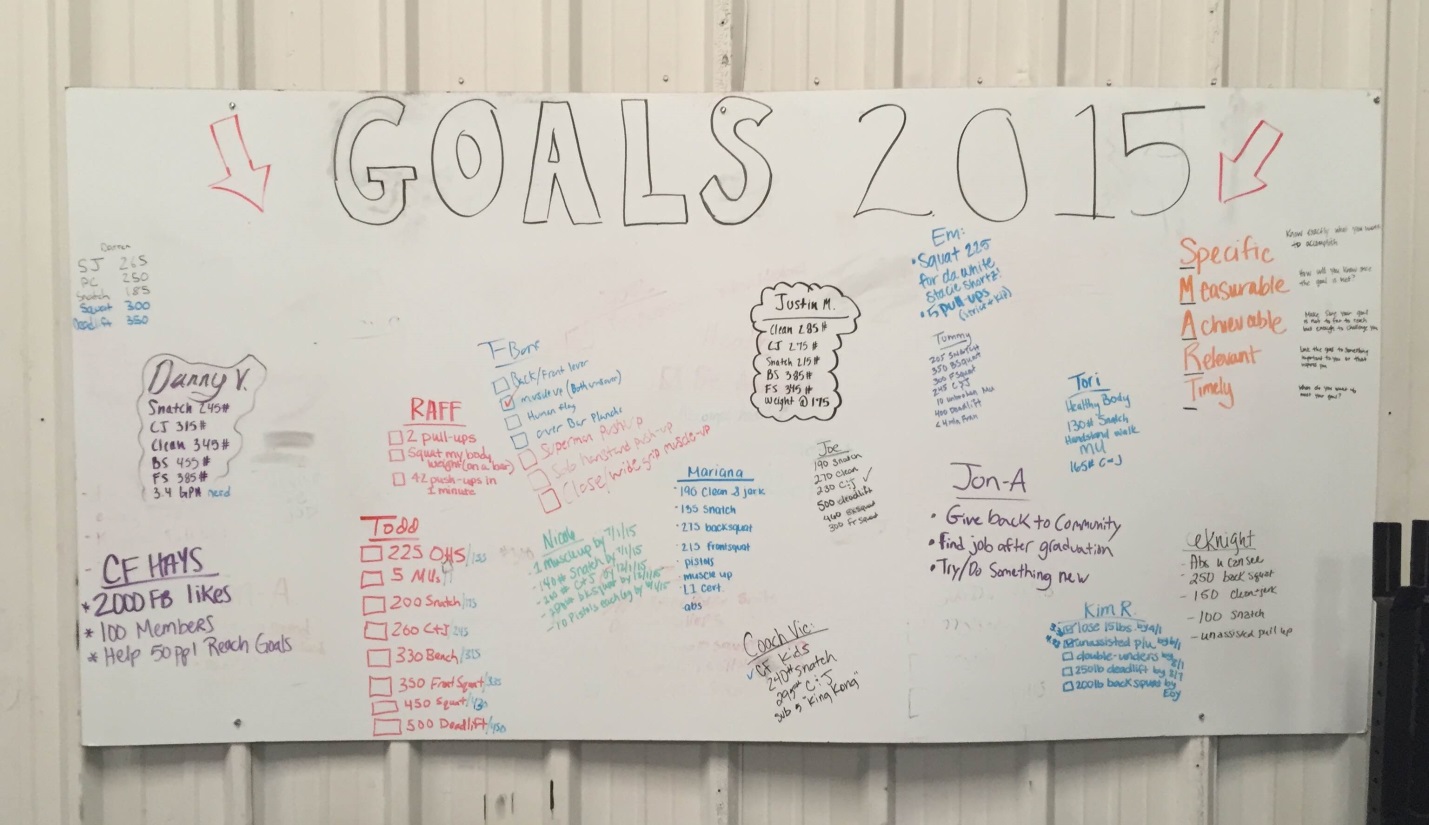 GOALS 2015
Darren
SJ 265
PC 250
Snatch 185
Squat 300
Deadlift 350
Danny V.
Snatch 245#
CJ 315#
Clean 345#
BS 455#
FS 385#
3.4 GPA need
CF HAYS
* 2000 FB likes
* 100 Members
* Help 50 ppl Reach Goals
RAFF
2 pull-ups
Squat my body
weight (on a bar)
42 push-ups in
1 minute
Todd
225 OHS/
5 MUs/
200 Snatch/
260 C+J
330 Bench/315
350 Front Squat/
450 Squat/
500 Deadlift/450
T-Bone
Back/Front lever
muscle up (Both
Human flag
over Bar Planche
Superman Pushup
Solo handstand push-up
Close/wide grip muscle-up
Nicole
- 1 muscle up by 7/1/15
- 140# Snatch by 7/1/15
C+J by 12/1/15
bk squat by 12/1/15
- 10 Pistols each leg by
Mariana
- 190 Clean & jerk
- 155 Snatch
- 275 backsquat
- 215 frontsquat
- pistols
- muscle up
- L1 cert.
- abs
Justin M.
Clean 285#
CJ 275#
Snatch 215#
BS 385#
FS 345#
weight @ 175
Joe
190 Snatch
270 Clean
230 C+J ✓
500 deadlift
460 BkSquat
300 Fr Squat
Coach Vic:
✓ CF Kids
240# Snatch
295# C+J
sub 5 "King Kong"
Em:
• Squat 225
for da white
Stacie Shortz!
• 5 pull-ups
(strict + kip)
Tummy
205 Snatch
350 BSquat
300 FSquat
245 C+J
10 unbroken Mu
400 Deadlift
Tori
Healthy Body
130# Snatch
Handstand walk
MU
165# C+J
Jon-A
• Give back to Community
• Find job after graduation
• Try/Do Something new
Kim R.
lose 15lbs by 4/1
unassisted p/u by 6/1
double-unders by
250lb deadlift by
200lb back squat by
EOY
eKnight
- Abs u can see
- 250 back squat
- 150 clean+jerk
- 100 snatch
- unassisted pull up
Specific
Know exactly what you want
to accomplish
Measurable
How will you know once
the goal is met?
Achievable
Make sure your goal
is not to far to reach
but enough to challenge you
Relevant
Link the goal to something
important to you or that
inspires you
Timely
When do you want to
meet your goal?